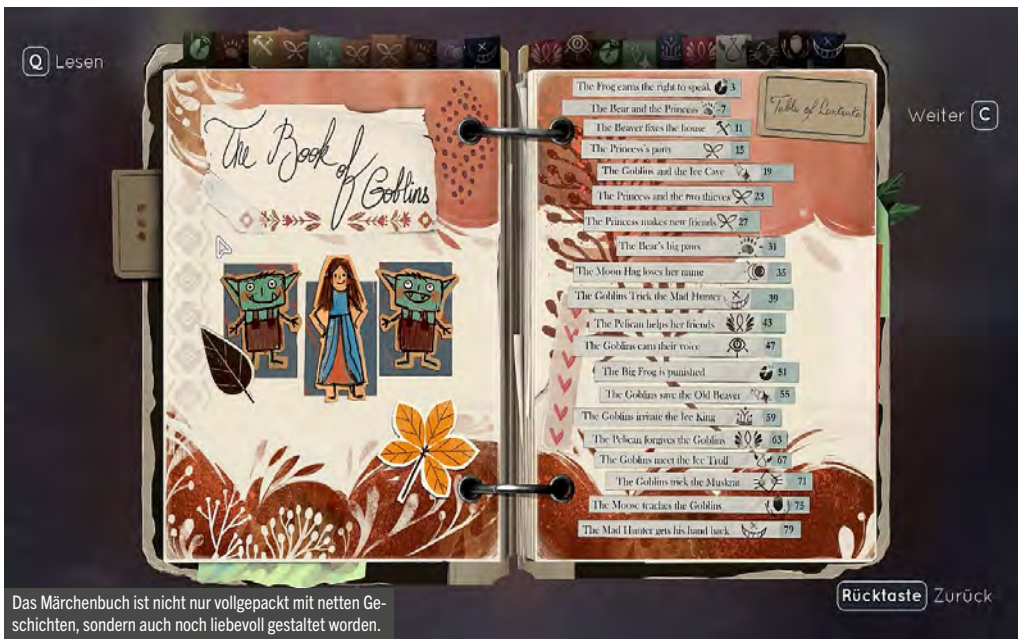 Q Lesen
Weiter C
The Book of
Goblins
Table of Contents
The Frog earns the right to speak 3
The Bear and the Princess 7
The Beaver fixes the house 11
The Princess's party 15
The Goblins and the Ice Cave 19
The Princess and the two thieves 23
The Princess makes new friends 27
The Bear's big paws 31
The Moon Hag loses her name 35
The Goblins Trick the Mad Hunter 39
The Pelican helps her friends 43
The Goblins earn their voice 47
The Big Frog is punished 51
The Goblins save the Old Beaver 55
The Goblins irritate the Ice King 59
The Pelican forgives the Goblins 63
The Goblins meet the Ice Troll 67
The Goblins trick the Muskrat 71
The Moose teaches the Goblins 75
The Mad Hunter gets his hand back 79
Rücktaste Zurück
Das Märchenbuch ist nicht nur vollgepackt mit netten Ge-
schichten, sondern auch noch liebevoll gestaltet worden.